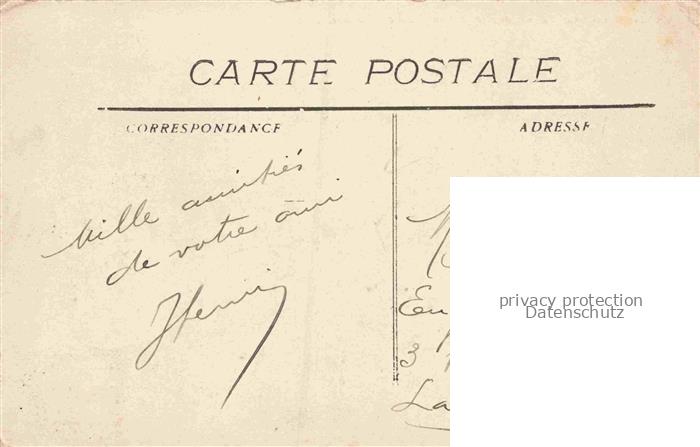 CARTE POSTALE
CORRESPONDANCE
ADRESSE
Mille amitiés
de votre ami
Henri
M
En
3
La
privacy protection
Datenschutz